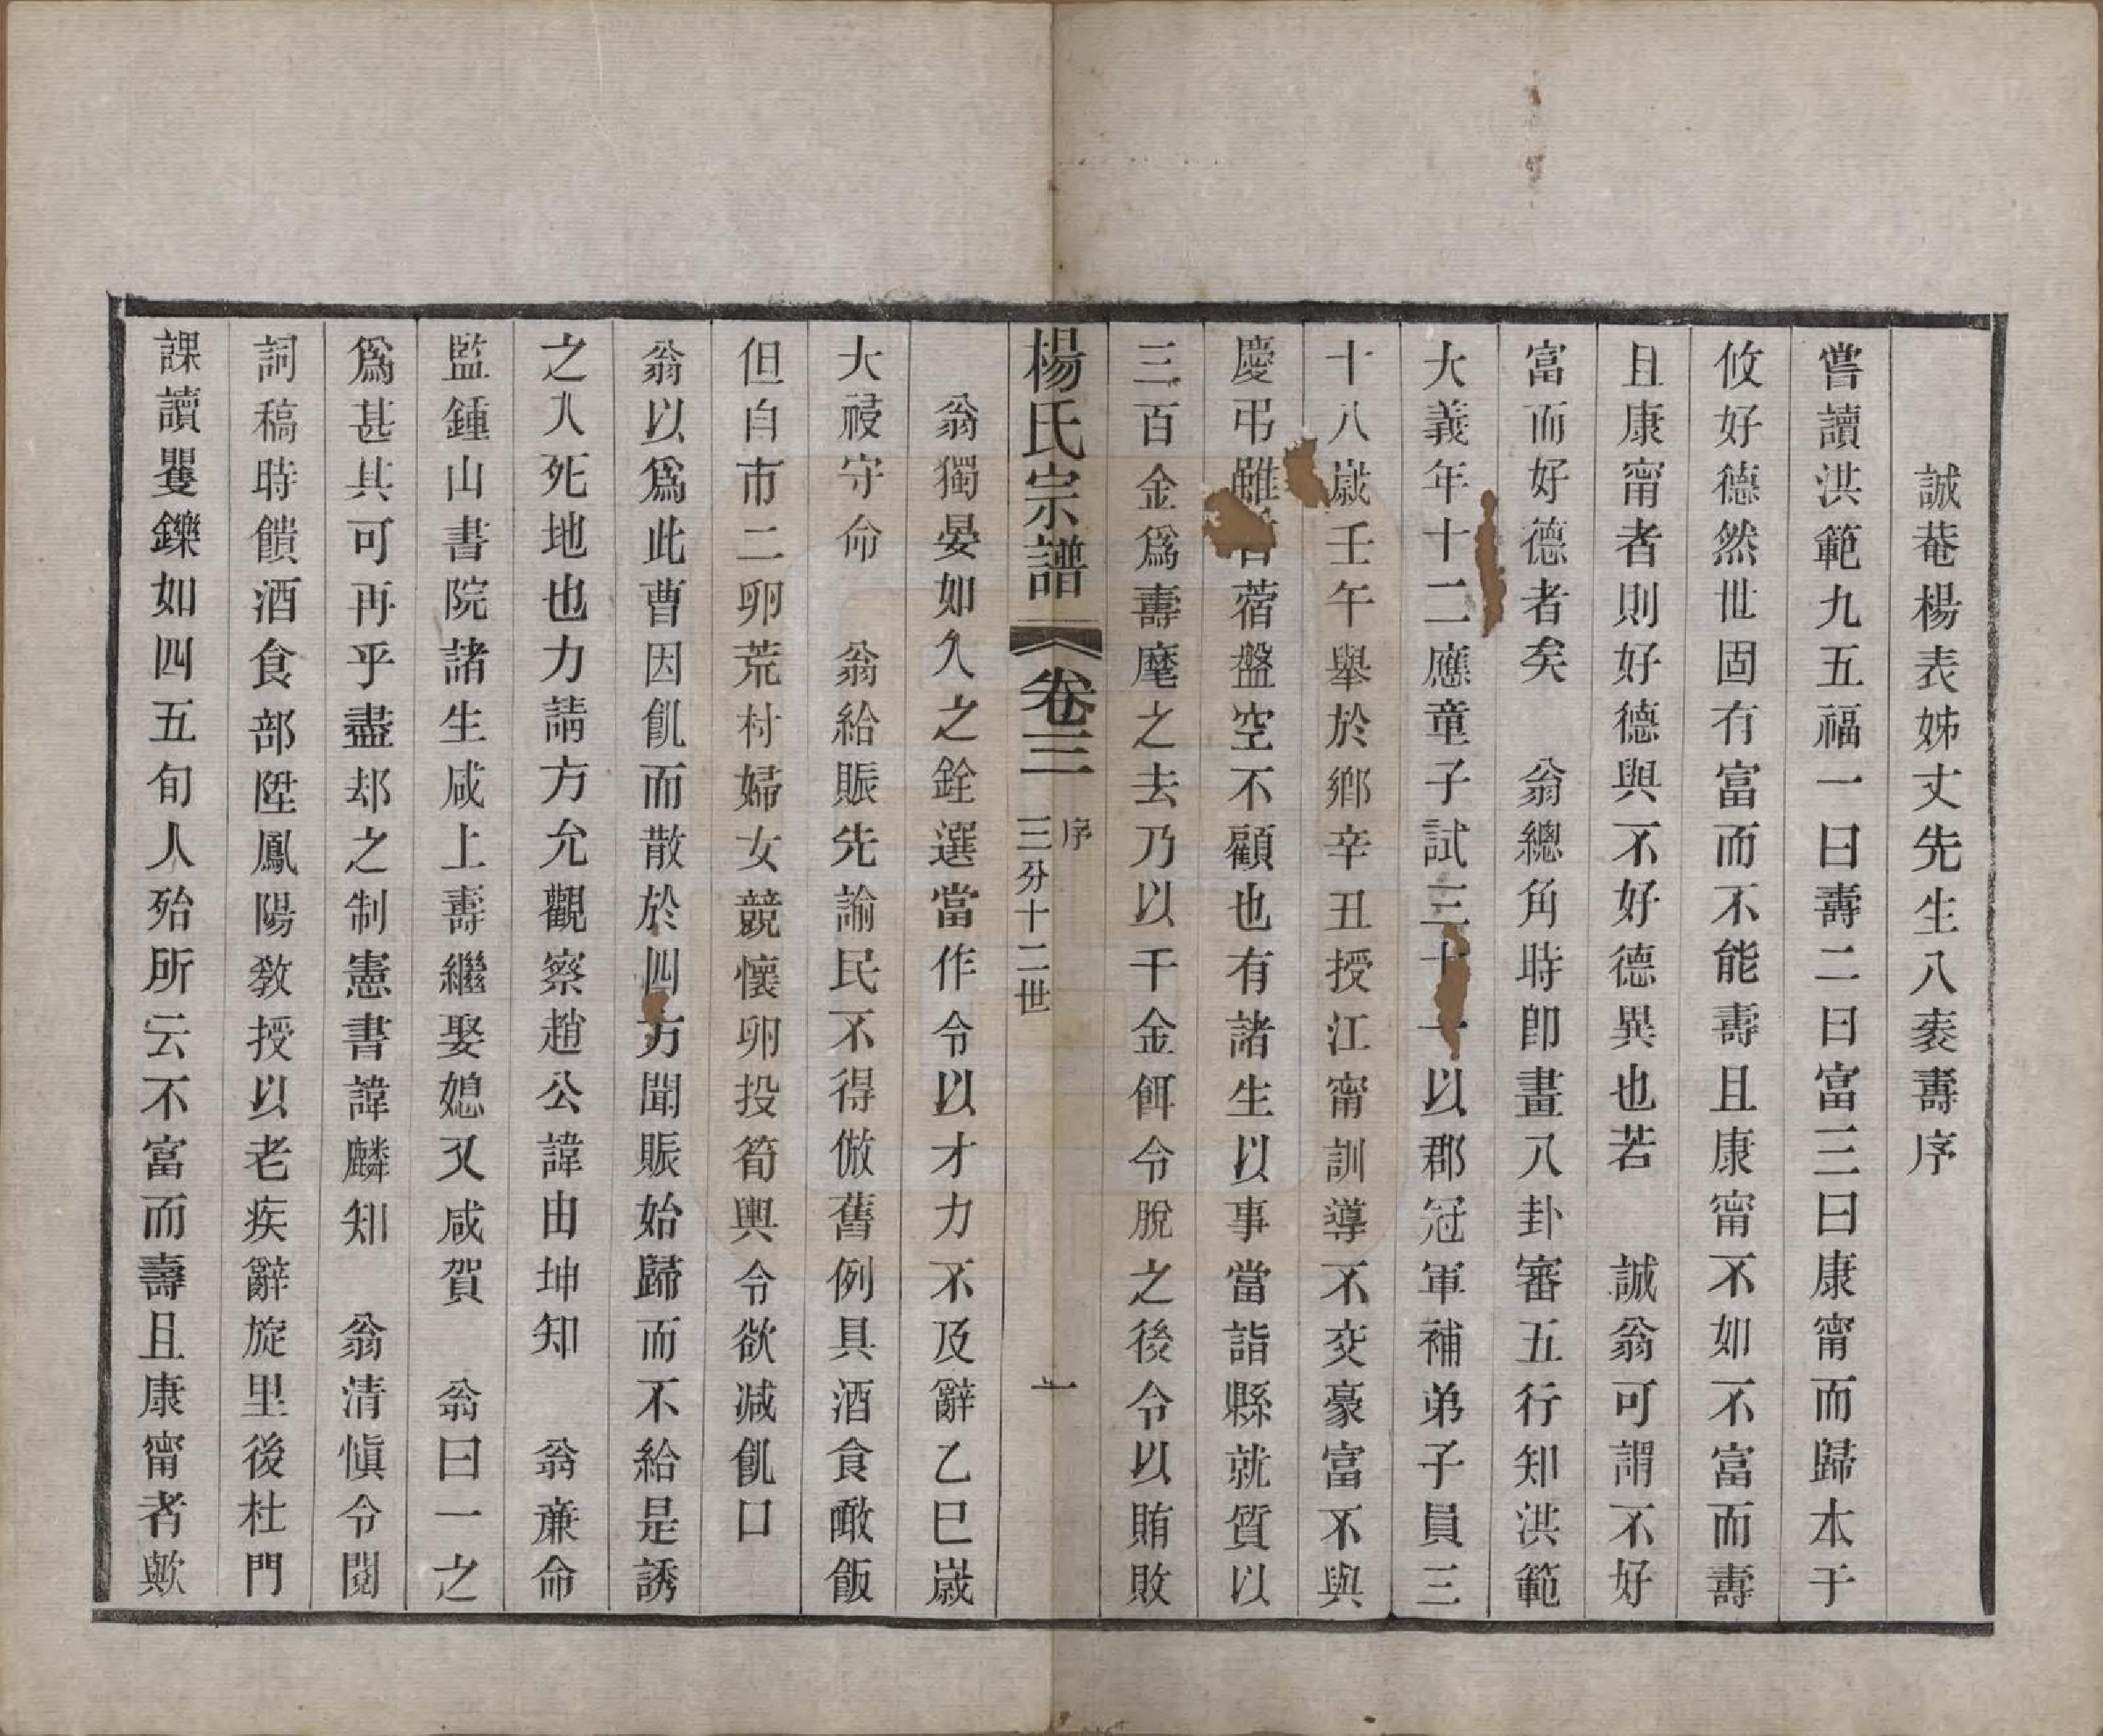 誠菴楊表姊丈先生八袠壽序
嘗讀洪範九五福一曰壽二曰富三曰康甯而歸本于
攸好德然世固有富而不能壽且康甯不如不富而壽
且康甯者則好德與不好德異也若　誠翁可謂不好
富而好德者矣　翁總角時卽畫八卦審五行知洪範
大義年十二應童子試三十一以郡冠軍補弟子員三
十八歲壬午舉於鄉辛丑授江甯訓導不交豪富不與
慶弔雖苜蓿盤空不顧也有諸生以事當詣縣就質以
三百金爲壽麾之去乃以千金餌令脫之後令以賄敗
楊氏宗譜　卷三　序　三分十二世　一
翁獨晏如久之銓選當作令以才力不及辭乙巳歲
大祲守命　翁給賑先諭民不得倣舊例具酒食噉飯
但自市二卵荒村婦女競懷卵投筍輿令欲減飢口
翁以爲此曹因飢而散於四方聞賑始歸而不給是誘
之入死地也力請方允觀察趙公諱由坤知　翁廉命
監鍾山書院諸生咸上壽繼娶媳又咸賀　翁曰一之
爲甚其可再乎盡却之制憲書諱麟知　翁清愼令閱
詞稿時饋酒食部陞鳳陽敎授以老疾辭旋里後杜門
課讀矍鑠如四五旬人殆所云不富而壽且康甯者歟